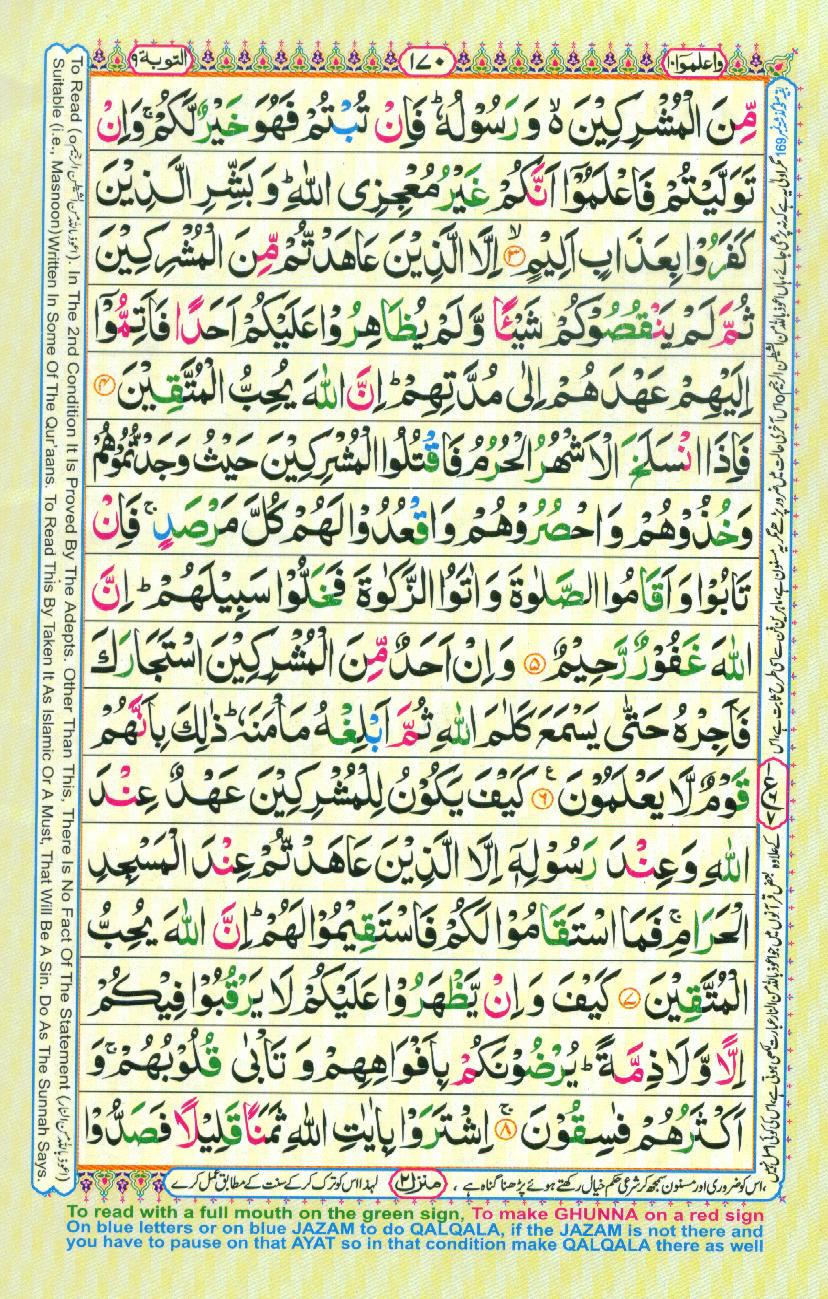 واعلموٓا ١٠
١٧٠
التوبة ٩
مِّنَ الْمُشْرِكِيْنَ ۙ۬ وَ رَسُوْلُهٗ ؕ فَاِنْ تُبْتُمْ فَهُوَ خَيْرٌ لَّكُمْ ۚ وَ اِنْ
تَوَلَّيْتُمْ فَاعْلَمُوْۤا اَنَّكُمْ غَيْرُ مُعْجِزِی اللّٰهِ ؕ وَ بَشِّرِ الَّذِيْنَ
كَفَرُوْا بِعَذَابٍ اَلِيْمٍ ۙ﴿۳﴾ اِلَّا الَّذِيْنَ عَاهَدْتُّمْ مِّنَ الْمُشْرِكِيْنَ
ثُمَّ لَمْ يَنْقُصُوْكُمْ شَيْـًٔا وَّ لَمْ يُظَاهِرُوْا عَلَيْكُمْ اَحَدًا فَاَتِمُّوْۤا
اِلَيْهِمْ عَهْدَهُمْ اِلٰی مُدَّتِهِمْ ؕ اِنَّ اللّٰهَ يُحِبُّ الْمُتَّقِيْنَ ﴿۴﴾
فَاِذَا انْسَلَخَ الْاَشْهُرُ الْحُرُمُ فَاقْتُلُوا الْمُشْرِكِيْنَ حَيْثُ وَجَدْتُّمُوْهُمْ
وَ خُذُوْهُمْ وَ احْصُرُوْهُمْ وَ اقْعُدُوْا لَهُمْ كُلَّ مَرْصَدٍ ۚ فَاِنْ
تَابُوْا وَ اَقَامُوا الصَّلٰوةَ وَ اٰتَوُا الزَّكٰوةَ فَخَلُّوْا سَبِيْلَهُمْ ؕ اِنَّ
اللّٰهَ غَفُوْرٌ رَّحِيْمٌ ﴿۵﴾ وَ اِنْ اَحَدٌ مِّنَ الْمُشْرِكِيْنَ اسْتَجَارَكَ
فَاَجِرْهُ حَتّٰی يَسْمَعَ كَلٰمَ اللّٰهِ ثُمَّ اَبْلِغْهُ مَاْمَنَهٗ ؕ ذٰلِكَ بِاَنَّهُمْ
قَوْمٌ لَّا يَعْلَمُوْنَ ﴿۶﴾ كَيْفَ يَكُوْنُ لِلْمُشْرِكِيْنَ عَهْدٌ عِنْدَ
اللّٰهِ وَ عِنْدَ رَسُوْلِهٖۤ اِلَّا الَّذِيْنَ عَاهَدْتُّمْ عِنْدَ الْمَسْجِدِ
الْحَرَامِ ۚ فَمَا اسْتَقَامُوْا لَكُمْ فَاسْتَقِيْمُوْا لَهُمْ ؕ اِنَّ اللّٰهَ يُحِبُّ
الْمُتَّقِيْنَ ﴿۷﴾ كَيْفَ وَ اِنْ يَّظْهَرُوْا عَلَيْكُمْ لَا يَرْقُبُوْا فِيْكُمْ
اِلًّا وَّ لَا ذِمَّةً ؕ يُرْضُوْنَكُمْ بِاَفْوَاهِهِمْ وَ تَاْبٰی قُلُوْبُهُمْ ۚ وَ
اَكْثَرُهُمْ فٰسِقُوْنَ ۚ﴿۸﴾ اِشْتَرَوْا بِاٰيٰتِ اللّٰهِ ثَمَنًا قَلِيْلًا فَصَدُّوْا
اس کو ضروری اور مسنون سمجھ کر شرعی حکم خیال رکھتے ہوئے پڑھنا گناہ ہے ،
منزل ٢
لہذا اس کو ترک کر کے سنت کے مطابق عمل کرے
To Read (اعوذ باللہ من الشیطٰن الرجیم). In The 2nd Condition It Is Proved By The Adepts. Other Than This, There Is No Fact Of The Statement (اعوذ باللہ من النار)
Suitable (i.e., Masnoon) Written In Some Of The Qur'aans. To Read This By Taken It As Islamic Or A Must, That Will Be A Sin. Do As The Sunnah Says.
To read with a full mouth on the green sign, To make GHUNNA on a red sign
On blue letters or on blue JAZAM to do QALQALA, if the JAZAM is not there and
you have to pause on that AYAT so in that condition make QALQALA there as well